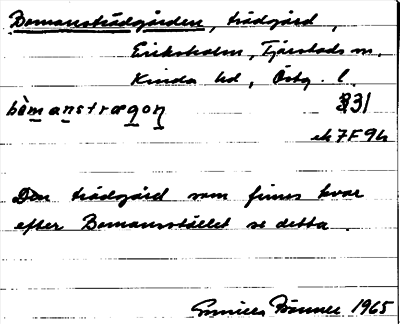 Bomansträdgården, trädgård,
Eriksholm, Tjärstads sn.
Kinda hd, Östg. l.
bòmanstrægoɳ 331
ek 7F9h
Den trädgård som finns kvar
efter Bomansstället se detta.
Gunilla 1965